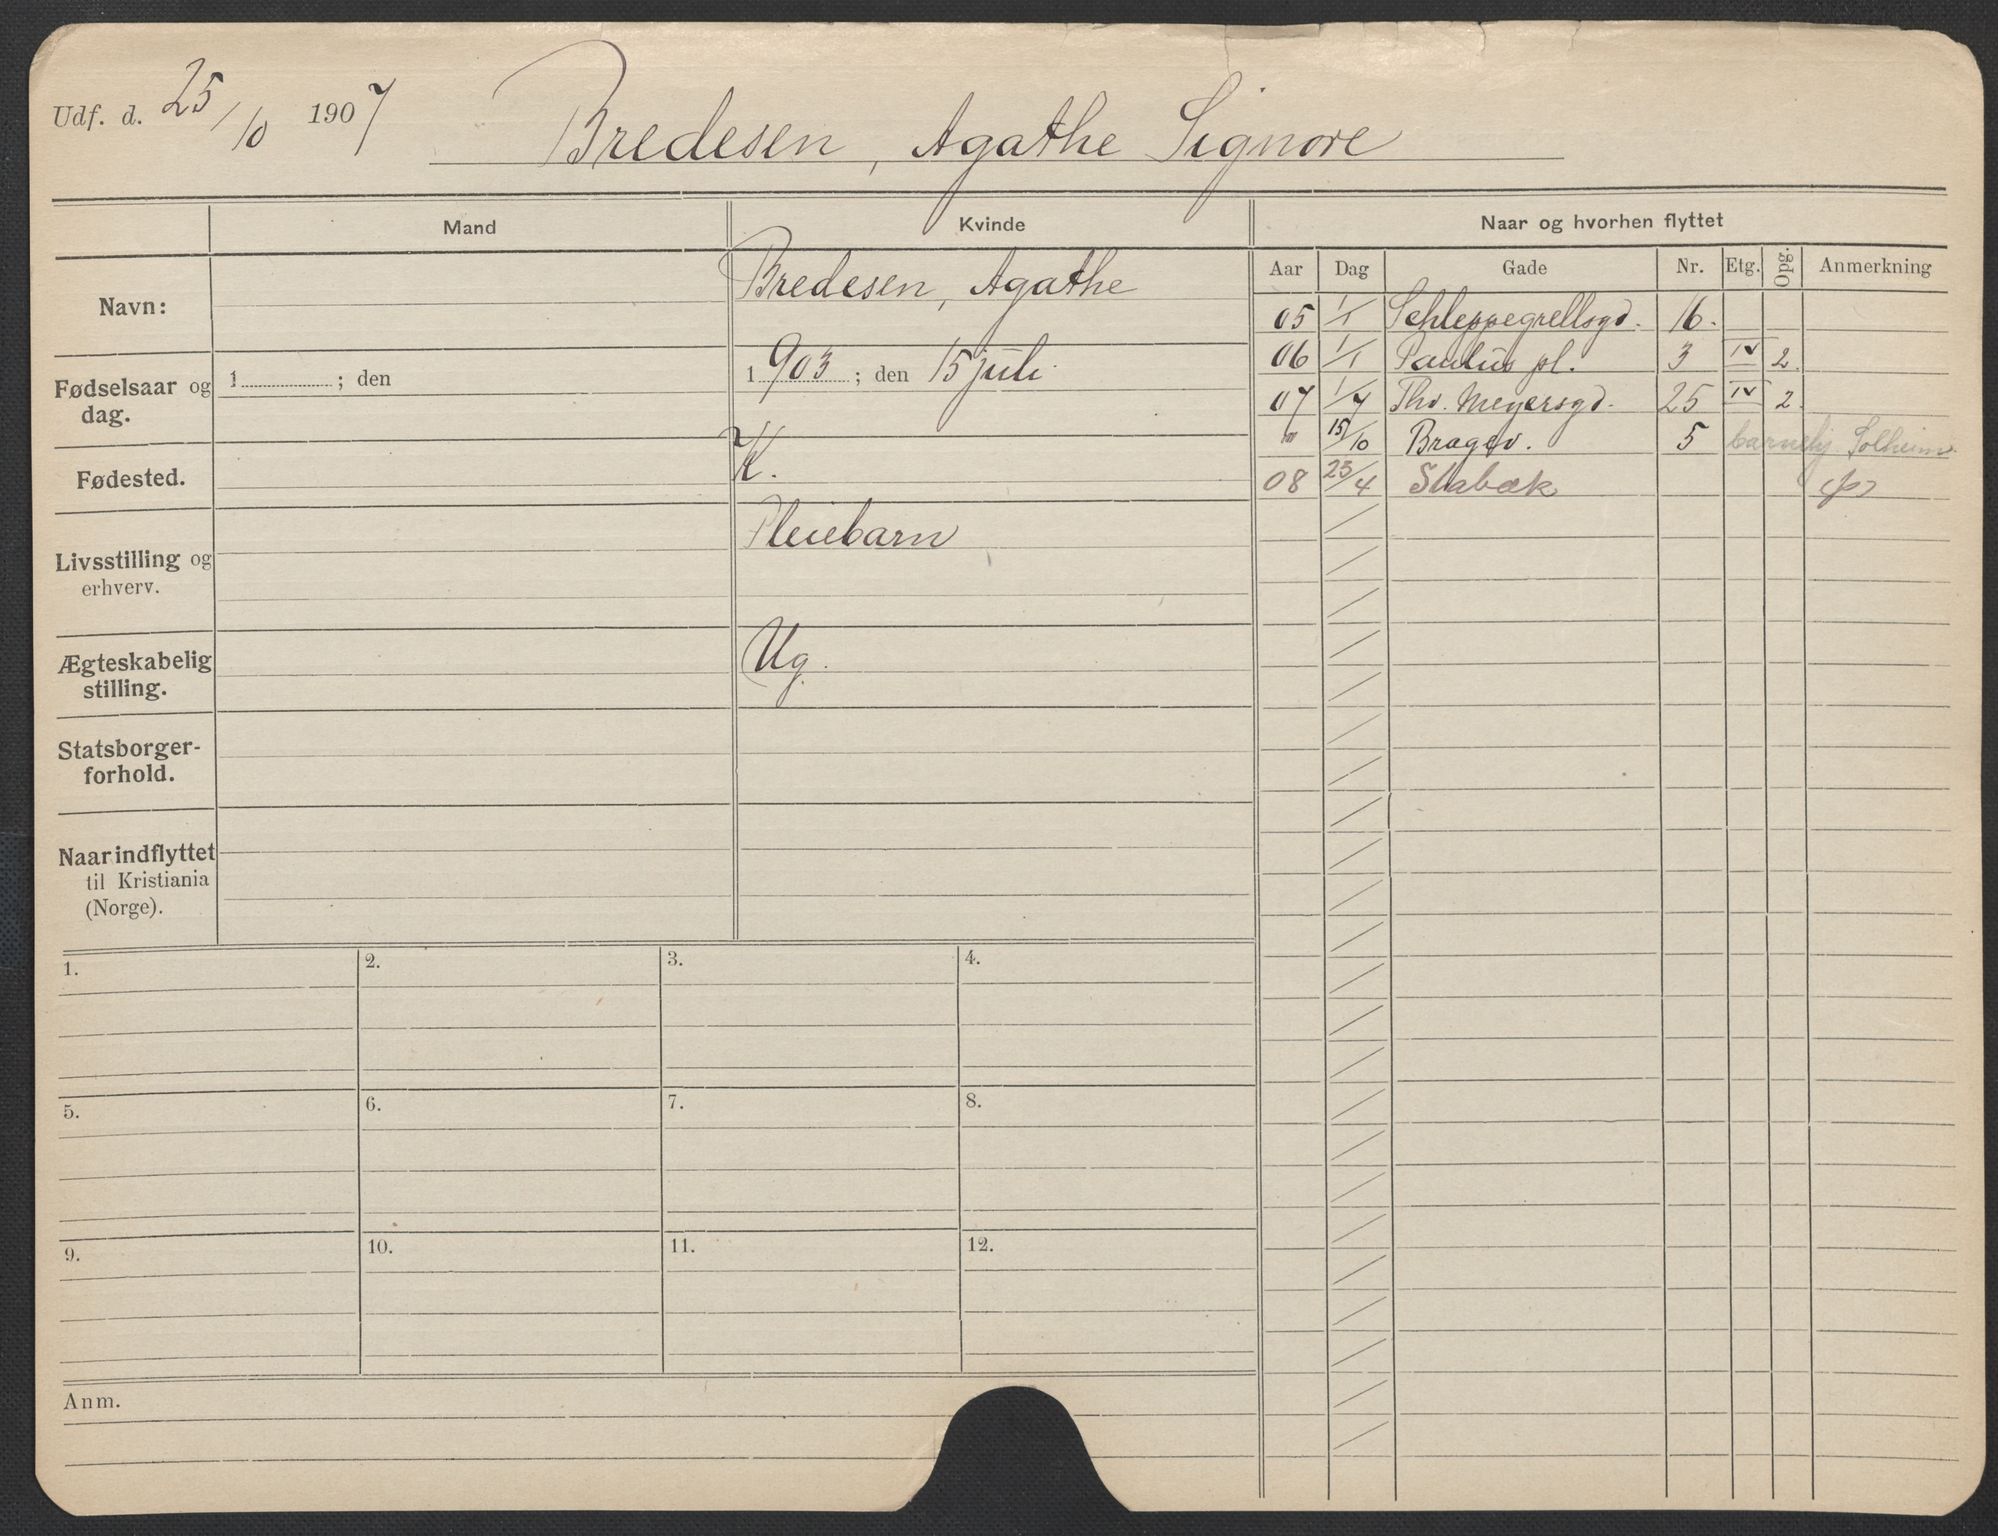 Udf. d. 25/10 1907 Bredesen, Agathe Signore
Mand Kvinde Naar og hvorhen flyttet
Aar Dag Gade Nr. Etg. Opg. Anmerkning
Navn: Bredesen, Agathe
Fødselsaar og dag. 1 ; den 1903 ; den 15 juli
Fødested. K.
Livsstilling og erhverv. Pleiebarn
Ægteskabelig stilling. Ug.
Statsborger-
forhold.
Naar indflyttet
til Kristiania
(Norge).
05 1/1 Schleppegrellsgd. 16.
06 1/1 Paulus pl. 3 IV 2.
07 1/7 Thv. Meyersgd. 25 IV 2.
" 15/10 Bragev. 5 barnehj. Solheim
08 23/4 Stabæk
1. 2. 3. 4.
5. 6. 7. 8.
9. 10. 11. 12.
Anm.